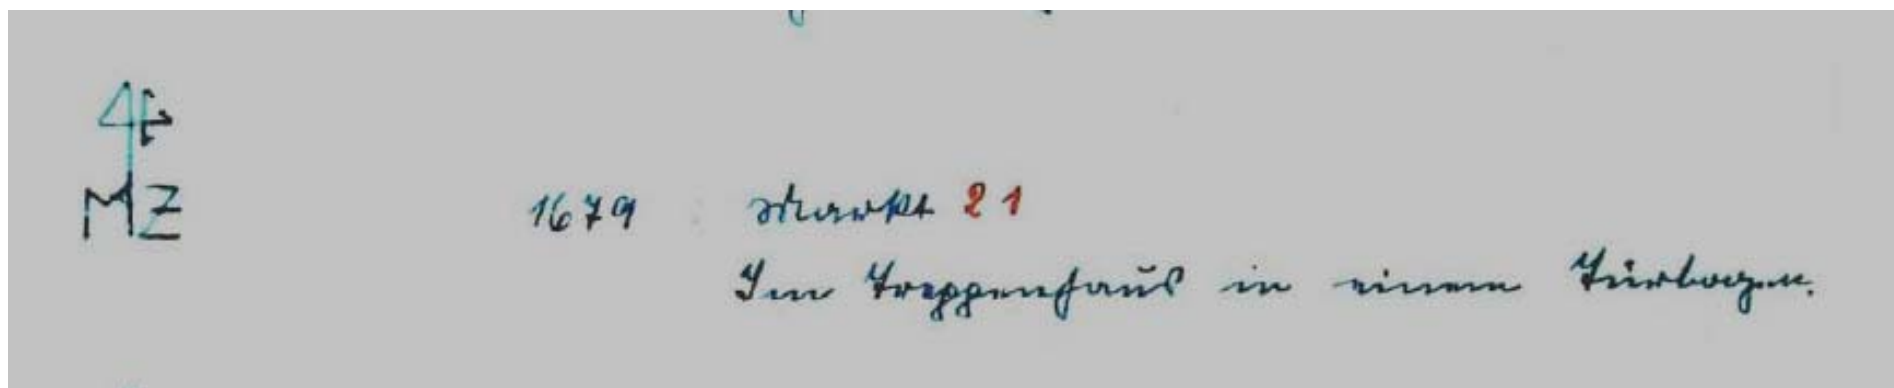 MZ
1679 Markt 21
Im Treppenhaus in einem Türbogen.